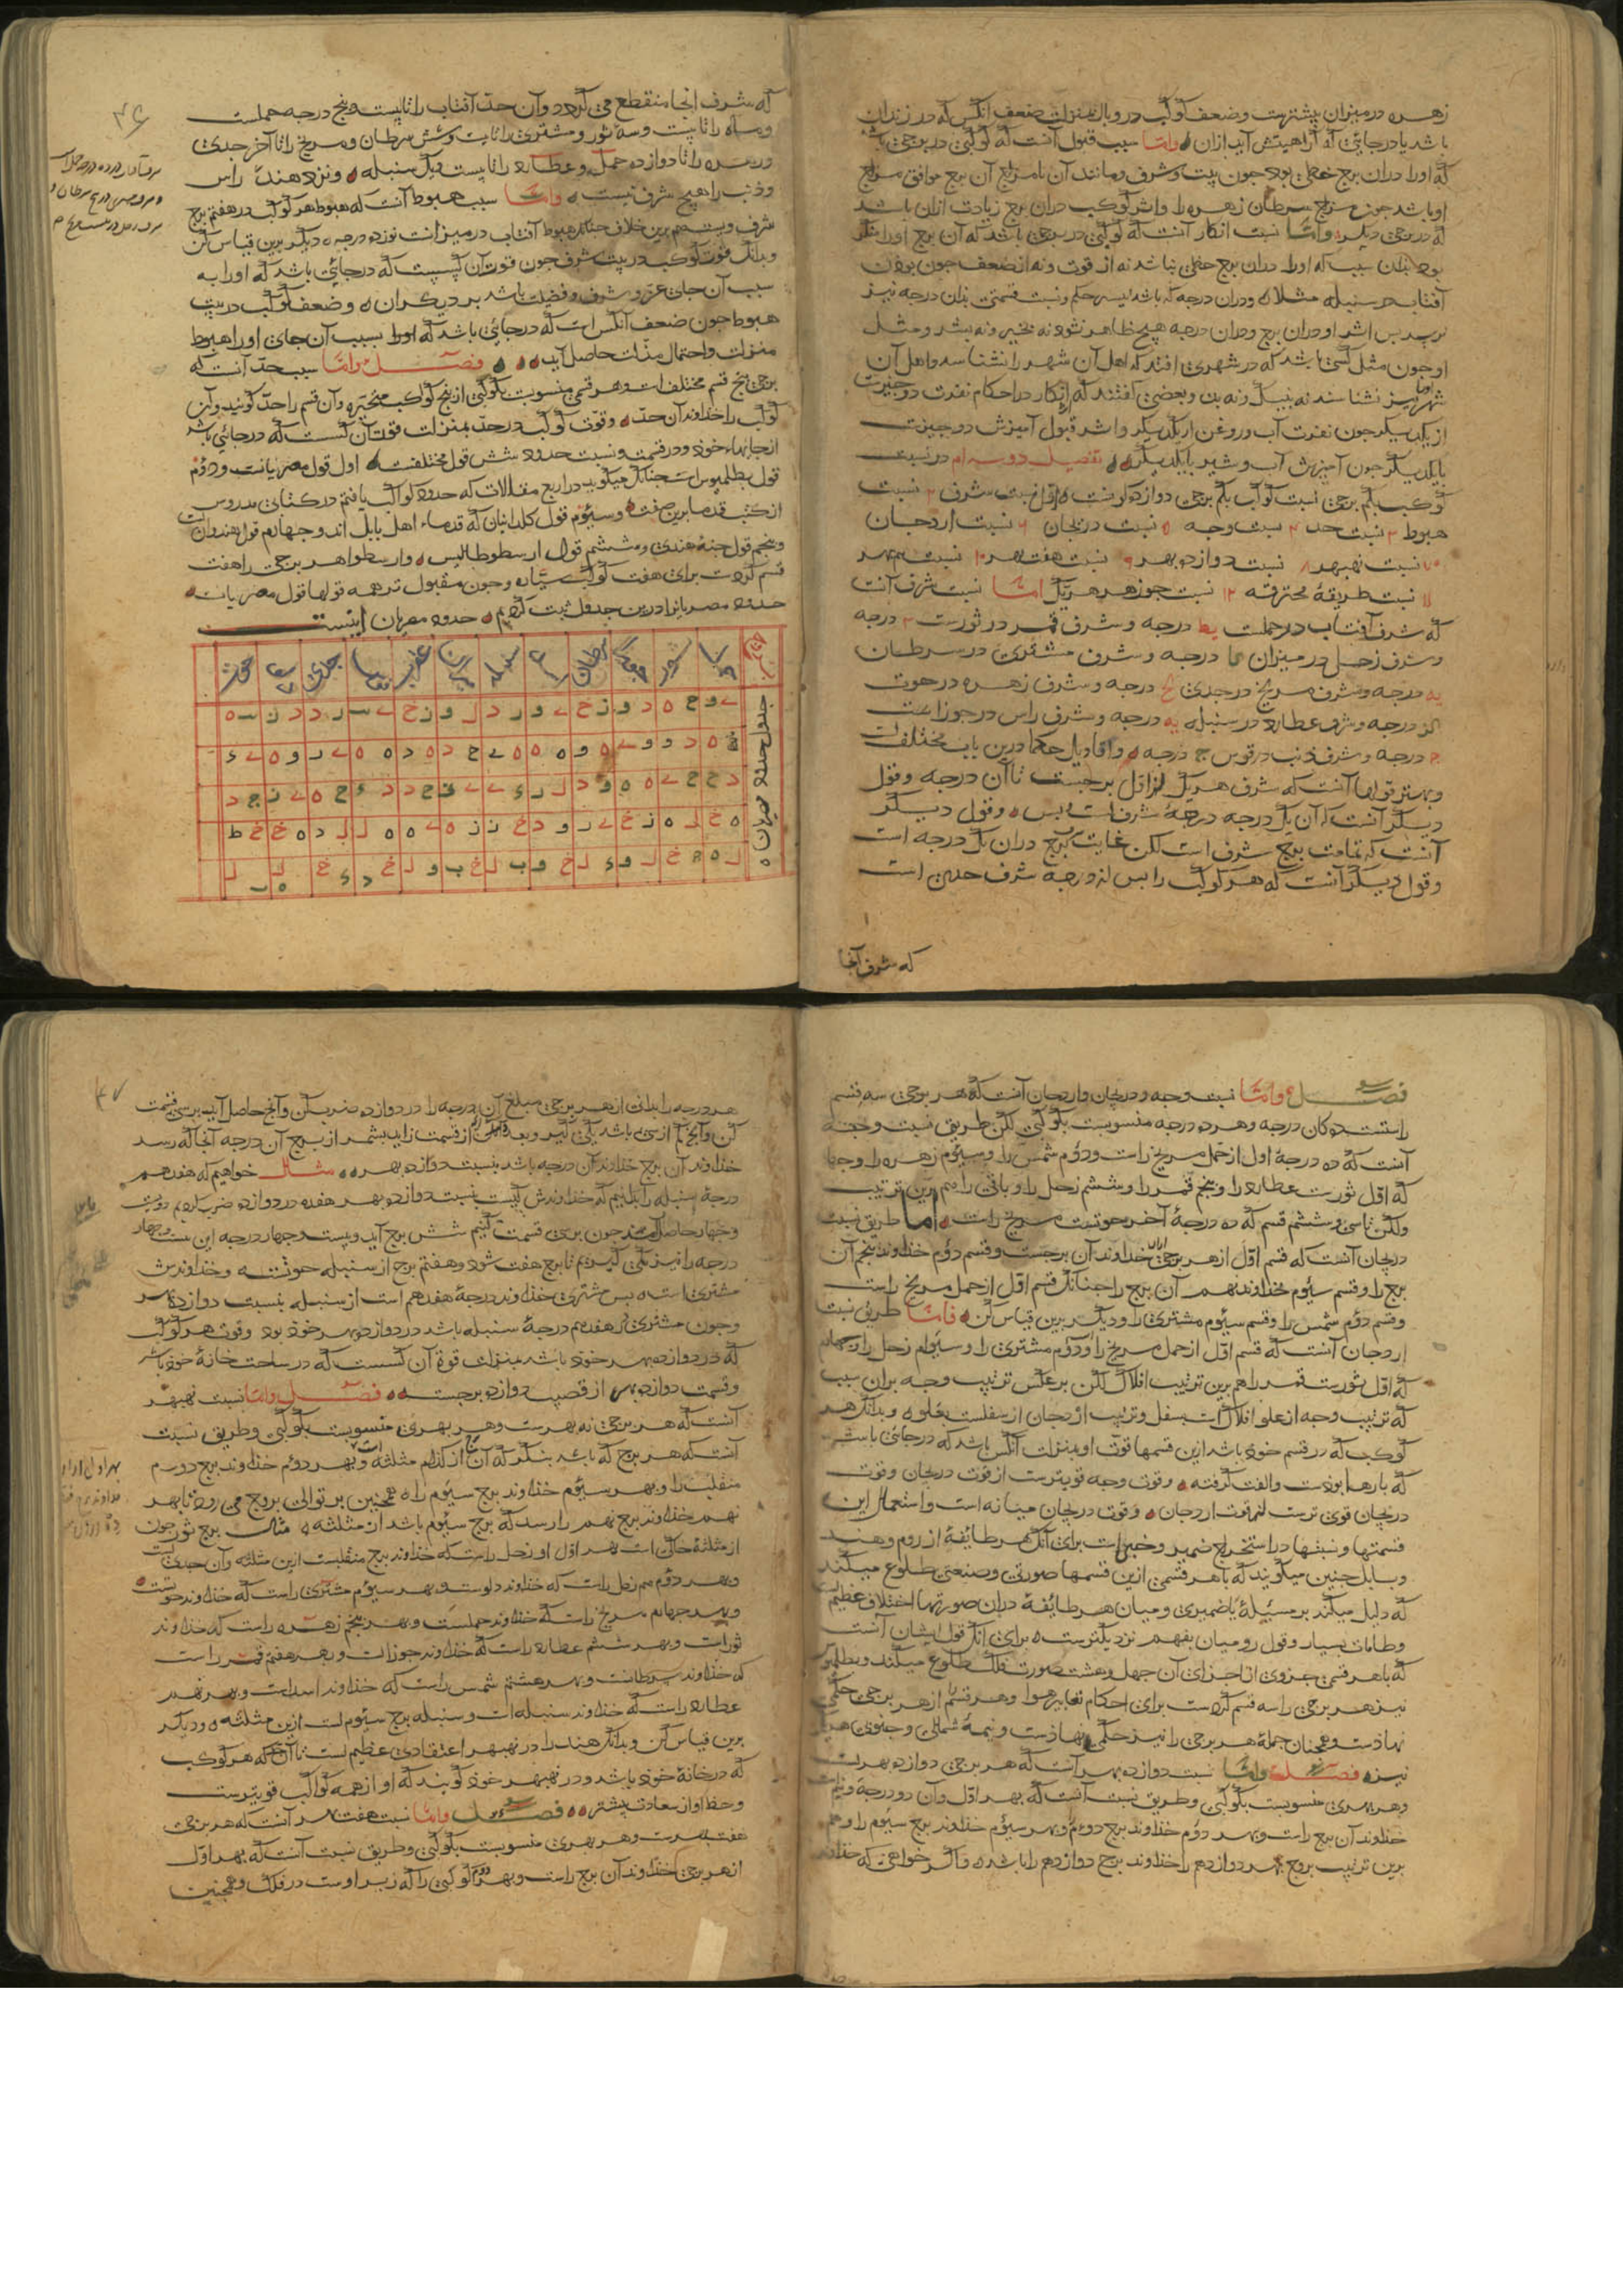 زهره در میزان بیشترست وضعف کوکب در وبال بمنزلت ضعف انکس که در زندان
باشد یا در جائی که کراهیتش آید ازان واما سبب قبول آنست که کوکبی در برجی باشد
که اورا دران برج حظی بود جون بیت وشرف ومانند آن یا مزاج آن برج موافق مزاج
او باشد جون مزاج سرطان زهره را واثر کوکب دران برج زیادت ازان باشد
که در برجی دیکر واما نسبت انکار آنست که کوکبی در برجی باشد که آن برج اورا
بود بدان سبب که اورا دران برج حظی نباشد نه از قوت ونه از ضعف جون بودن
آفتاب در سنبله مثلا ودران درجه که باشد
اوجون مثل کسی باشد که در شهری افتد که اهل آن شهر را نشناسد واهل آن
شهر اورا نیز نشناسند نه بنیک ونه ببد وبعضی کفتند که انکار در احکام نفرت دو جیزست
از یکدیکر جون نفرت آب وروغن از یکدیکر واثر قبول آمیزش دو جیزست
بایکدیکر جون آمیزش آب وشیر بایکدیکر تفصیل دوسدام در نسبت
کوکب بکم برجی نسبت کواکب بکم برجی دوازده کونه است اول نسبت شرف ٢ نسبت
هبوط ٣ نسبت حد ٤ نسبت وجه ٥ نسبت دریجان ٦ نسبت اردجان
٧ نسبت نهبهر ٨ نسبت دوازده بهر ٩ نسبت هفت بهر ١٠ نسبت نیم بهر
١١ نسبت طریقهٔ محترقه ١٢ نسبت جوزهر هریک اما نسبت شرف آنست
که شرف آفتاب در حملست یط درجه وشرف قمر در ثورست ٣ درجه
وشرف زحل در میزان کا درجه وشرف مشتری در سرطان
یه درجه وشرف مریخ در جدی کح درجه وشرف زهره در حوت
کز درجه وشرف عطارد در سنبله یه درجه وشرف راس در جوزا است
ج درجه وشرف ذنب در قوس ج درجه واقاویل حکما درین باب مختلفست
وبهتر قولها آنست که شرف هریک از اول برجست تا آن درجه وقول
دیکر آنست که آن یک درجه درجهٔ شرف است وبس وقول دیکر
آنست که تمامت برج شرف است لکن غایت برج دران یک درجه است
وقول دیکر آنست که هر کوکب را بس از درجه شرف حدیست
که شرف آنجا
که شرف انجا منقطع می کردد وآن حد آفتاب را تا بیست وبنج درجه حملست
وماه را تا بیست وسه ثور ومشتری را تا بیست وشش سرطان ومریخ را تا آخر جدی
وزهره را تا دوازده حمل وعطارد را تا بیست ویک سنبله ونزد هند راس
وذنب را هیچ شرف نیست واما سبب هبوط آنست که هبوط هر کوکب در هفتم برج
شرف ویست هم برین خلاف جنانک هبوط آفتاب در میزانست نوزده درجه ودیکر برین قیاس کن
وبدانک قوت کوکب در بیت شرف جون قوت آن کسیست که در جائی باشد که اورا به
سبب آن جای عز وشرف وفضیلت باشد بر دیکران وضعف کوکب در بیت
هبوط جون ضعف آنکس است که در جائی باشد که اورا بسبب آن جای اورا هبوط
منزلت واحتمال مذلت حاصل آید فصل واما سبب حد آنست که
برجی بنج قسم مختلف است وهر قسمی منسوبست بکوکبی از بنج کواکب متحیره وآن قسم را حد کویند وآن
کوکب را خداوند آن حد وقوت کوکب در حد بمنزلت قوت آن کسست که در جائی باشد
از جایهاء خود ودر قسمت ونسبت حدود شش قول مختلفست اول قول مصریانست ودوم
قول بطلمیوس است جنانک میکوید در اربع مقالات که حدود کواکب یافتم در کتابی مدروس
از کتب قدما برین صفت وسیوم قول کلدانیان که قدماء اهل بابل اند وجهارم قول هندوانست
وبنجم قول جنهٔ هندی وششم قول ارسطوطالیس وارسطو هر برجی را هفت
قسم کردست برای هفت کوکب سیاره وجون مقبول ترهمه قولها قول مصریانست
حدود مصریانرا درین جدول ثبت کردیم حدود مصریان اینست
جدول حدود مصریان
حمل ثور جوزا سرطان اسد سنبله میزان عقرب قوس جدی دلو حوت
فصل واما نسبت وجه ودریجان واردجان آنست که هر برجی سه قسم
راستست ده کان درجه وهر ده درجه منسوبست بکوکبی لکن طریق نسبت وجه
آنست که ده درجهٔ اول از حمل مریخ راست ودوم شمس را وسیوم زهره را وجهارم
که اول ثورست عطارد را وبنجم قمر را وششم زحل را وباقی را هم برین ترتیب
ولکن تا سی وششم قسم که ده درجهٔ آخر حوتست مریخ راست اما طریق نسبت
دریجان آنست که قسم اول از هر برجی خداوند آن برجست وقسم دوم خداوند بنجم آن
برج را وقسم سیوم خداوند نهم آن برج را جنانک قسم اول از حمل مریخ راست
وقسم دوم شمس را وقسم سیوم مشتری را ودیکر برین قیاس کن فاما طریق نسبت
اردجان آنست که قسم اول از حمل مریخ را ودوم مشتری را وسیوم زحل را وجهارم
که اول ثورست قمر را هم برین ترتیب افلاک لکن بر عکس ترتیب وجه بدان سبب
که ترتیب وجه از علو افلاک است بسفل وترتیب اردجان از سفلست بعلو وبدانک هر
کوکب که در قسم خود باشد ازین قسمها قوت او بمنزلت آنکس باشد که در جائی باشد
که بارها بودست والفت کرفته وقوت وجه قویترست از قوت دریجان وقوت
دریجان قوی ترست از قوت اردجان وقوت دریجان میانه است واستعمال این
قسمتها ونسبتها در استخراج ضمیر وخبی است برای آنک هر طائفهٔ از روم وهند
وبابل جنین میکویند که با هر قسمی ازین قسمها صورتی وصنعتی طلوع میکند
که دلیل میکند بر مسئیلهٔ یا ضمیری ومیان هر طائفهٔ دران صورتها اختلاف عظیم
وطامات بسیار وقول رومیان بفهم نزدیکترست برای آنک قول ایشان آنست
که با هر قسمی جزوی از اجزای آن جهل وهشت صورت فلک طلوع میکند وبطلمیوس
نیز هر برجی را سه قسم کردست برای احکام تغایر هوا وهر قسم را از هر برجی حکمی
نهادست وهمجنان جملهٔ هر برجی را نیز حکمی نهادست ونیمهٔ شمالی وجنوبی هریک
نیز فصل واما نسبت دوازده بهر آنست که هر برجی دوازده بهرست
وهر بهری منسوبست بکوکبی وطریق نسبت آنست که بهر اول وآن دو درجه ونیم است
خداوند آن برج راست وبهر دوم خداوند برج دوم وبهر سیوم خداوند برج سیوم را وهم
برین ترتیب بروج بهر دوازدهم را خداوند برج دوازدهم را باشد واکر خواهی که خداوند
هر درجه را بدانی از هر برجی مبلغ آن درجه را در دوازده ضرب کن وآنج حاصل آید برسی قسمت
کن وآنج کم از سی باشد یکی کیر وبعد ازان از قسمت زاید بشمر از برج آن درجه آنجا که رسد
خداوند آن برج خداوند آن درجه باشد بنسبت دوازده بهر مثال خواهیم که هفدهم
درجهٔ سنبله را بدانیم که خداوندش کیست بنسبت دوازده بهر هفده در دوازده ضرب کردیم دویست
وجهار حاصل آمد جون برسی قسمت کنیم شش برج آید وبیست وجهار درجه این بیست وجهار
درجه را نیز یکی کیریم تا برج هفت شود وهفتم برج از سنبله حوتست وخداوندش
مشتری است بس مشتری خداوند درجهٔ هفدهم است از سنبله بنسبت دوازده بهر
وجون مشتری در هفدهم درجهٔ سنبله باشد در دوازده بهر خود بود وقوت هر کوکب
که در دوازده بهر خود باشد بمنزلت قوة آن کسست که در ساحت خانهٔ خود باشد
وقسمت دوازده بهر از قصبت دوازده برجست فصل واما نسبت نهبهر
آنست که هر برجی نه بهرست وهر بهری منسوبست بکوکبی وطریق نسبت
آنست که هر برج که باشد بنکر که آن از کدام مثلثه است وبهر دوم خداوند برج دوم
منقلبست را وبهر سیوم خداوند برج سیوم را همجنین بر توالی بروج می رود تا بهر
نهم خداوند برج نهم را رسد که برج سیوم باشد ازان مثلثه مثال برج ثور جون
از مثلثهٔ خاکی است بهر اول او زحل راست که خداوند برج منقلبست ازین مثلثه وآن جدی است
وبهر دوم هم زحل راست که خداوند دلوست وبهر سیوم مشتری راست که خداوند حوتست
وبهر جهارم مریخ راست که خداوند حملست وبهر بنجم زهره راست که خداوند
ثورست وبهر ششم عطارد راست که خداوند جوزاست وبهر هفتم قمر راست
که خداوند سرطانست وبهر هشتم شمس راست که خداوند اسدست وبهر نهم
عطارد راست که خداوند سنبله است وسنبله برج سیوم است ازین مثلثه ودیکر
برین قیاس کن وبدانک هند را در نهبهر اعتقادی عظیم است تا آنجا که هر کوکب
که در خانهٔ خود باشد ودر نهبهر خود کویند که او از همه کواکب قویترست
وحظ او از سعادت بیشتر فصل واما نسبت هفت بهر آنست که هر برجی
هفت بهرست وهر بهری منسوبست بکوکبی وطریق نسبت آنست که بهر اول
از هر برجی خداوند آن برج راست وبهر دوم کوکبی را که زیر اوست در فلک وهمجنین